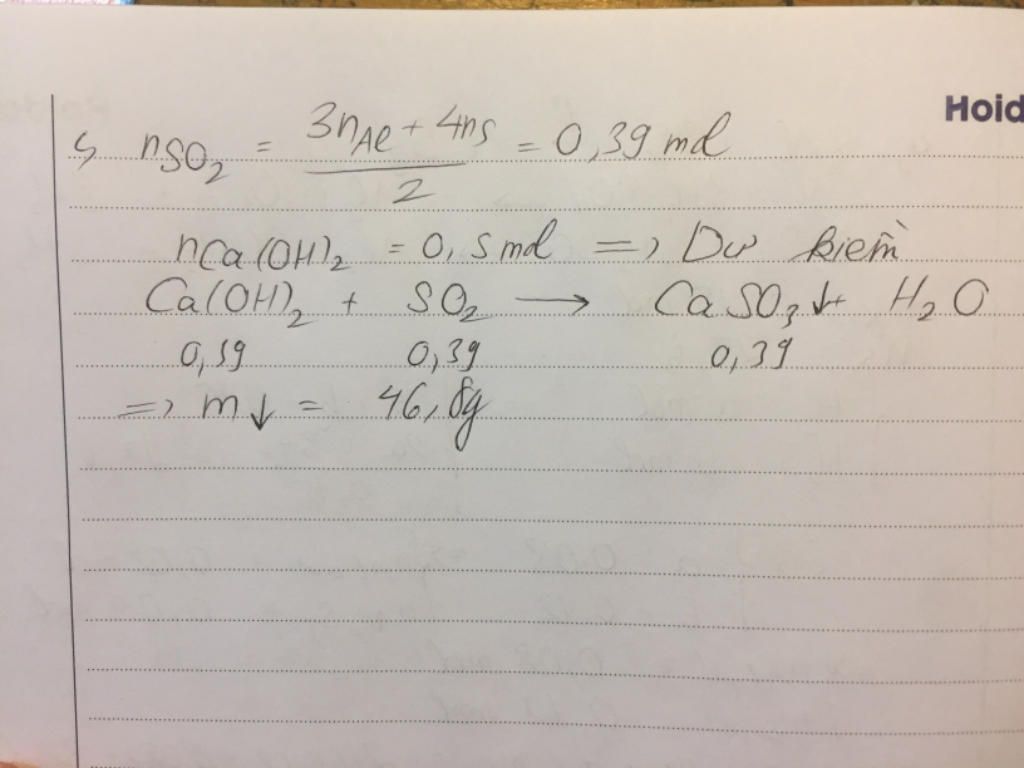 Hoid
↳ nSO₂ = (3nAl + 4nS)/2 = 0,39 mol
nCa(OH)₂ = 0,5 mol => Dư kiềm
Ca(OH)₂ + SO₂ → CaSO₃↓ + H₂O
0,39 0,39 0,39
=> m↓ = 46,8g